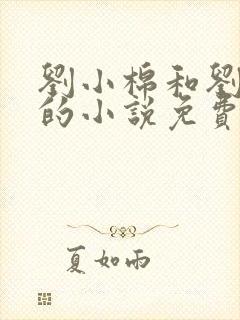 劉小棉和劉
的小說免費
夏如雨